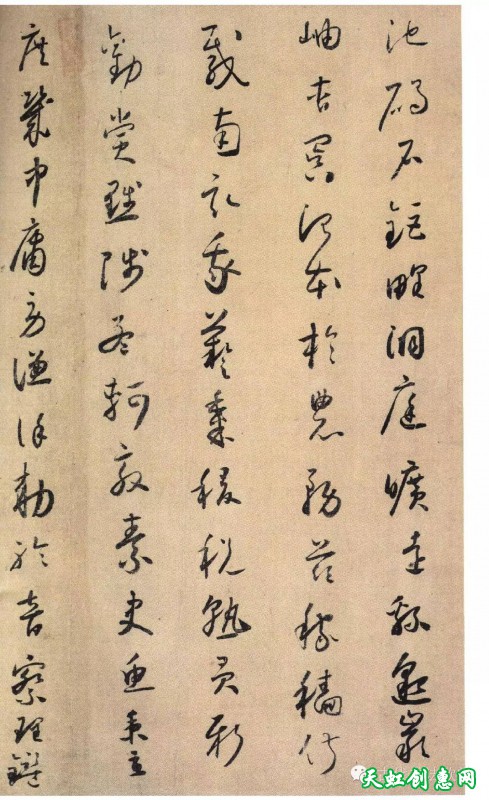 池碣石鉅野洞庭曠遠緜邈巖
岫杳冥治本於農務茲稼穡俶
載南畝我藝黍稷稅熟貢新
勸賞黜陟孟軻敦素史魚秉直
庶幾中庸勞謙謹勅聆音察理鑑
天虹创惠网